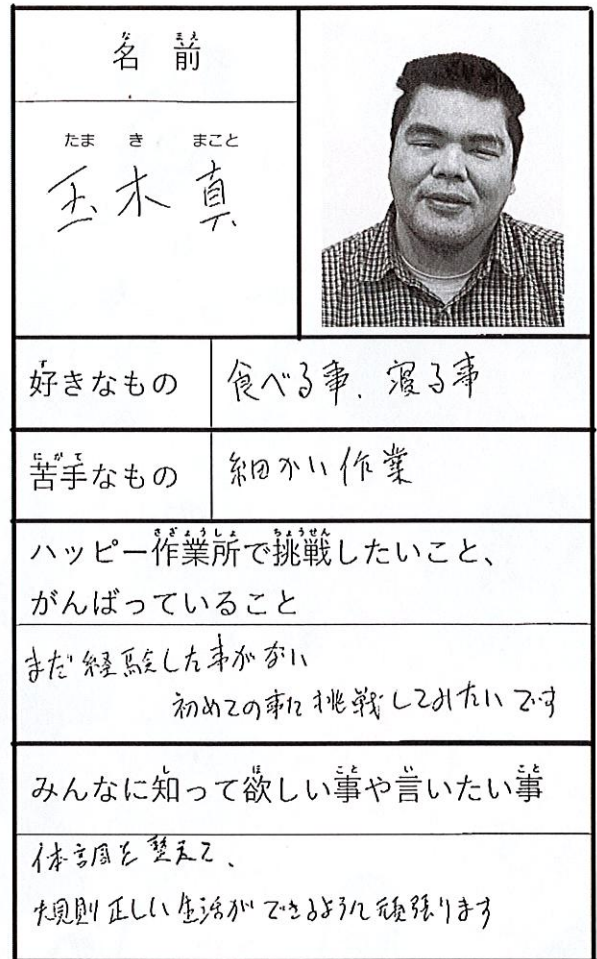 名前
玉木 真
たま き まこと
好きなもの
食べる事、寝る事
苦手なもの
細かい作業
ハッピー作業所で挑戦したいこと、
がんばっていること
まだ経験した事がない
初めての事に挑戦してみたいです
みんなに知って欲しい事や言いたい事
体調を整えて、
規則正しい生活ができるように頑張ります